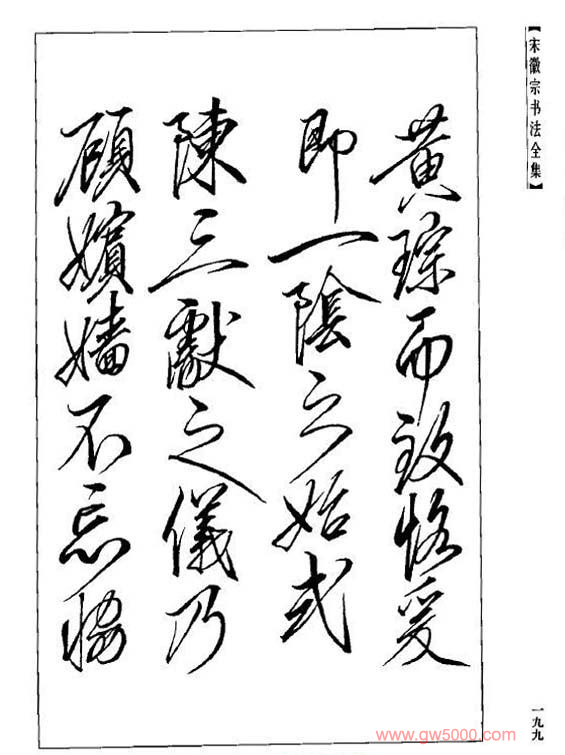 【宋徽宗书法全集】
黄琮而致恪爰
即一陰之始式
陳三獻之儀乃
顧嬪嬙不忘
一九九
www.gw5000.com